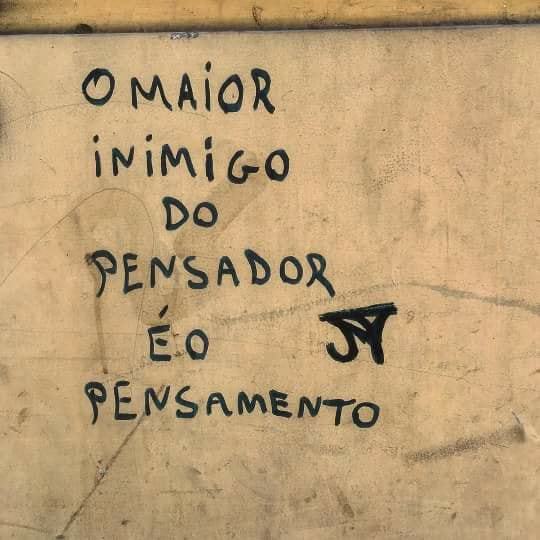 O MAiOR
iNiMiGO
DO
PENSADOR
É O
PENSAMENTO